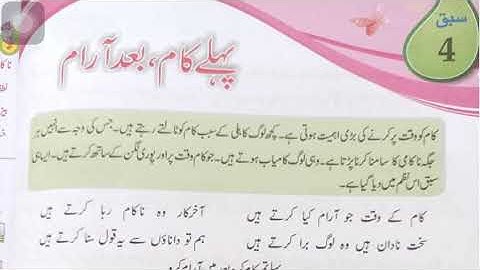 سبق
4
پہلے کام، بعد آرام
کام کو وقت پر کرنے کی بڑی اہمیت ہوتی ہے۔ کچھ لوگ کاہلی کے سبب کام کو ٹالتے رہتے ہیں۔ جس کی وجہ سے انہیں ہر
جگہ ناکامی کا سامنا کرنا پڑتا ہے۔ وہی لوگ کامیاب ہوتے ہیں۔ جو کام وقت پر اور پوری لگن کے ساتھ کرتے ہیں۔ ایسا ہی
سبق اس نظم میں دیا گیا ہے۔
کام کے وقت جو آرام کیا کرتے ہیں آخرکار وہ ناکام رہا کرتے ہیں
سخت نادان ہیں وہ لوگ برا کرتے ہیں ہم تو داناؤں سے یہ قول سنا کرتے ہیں